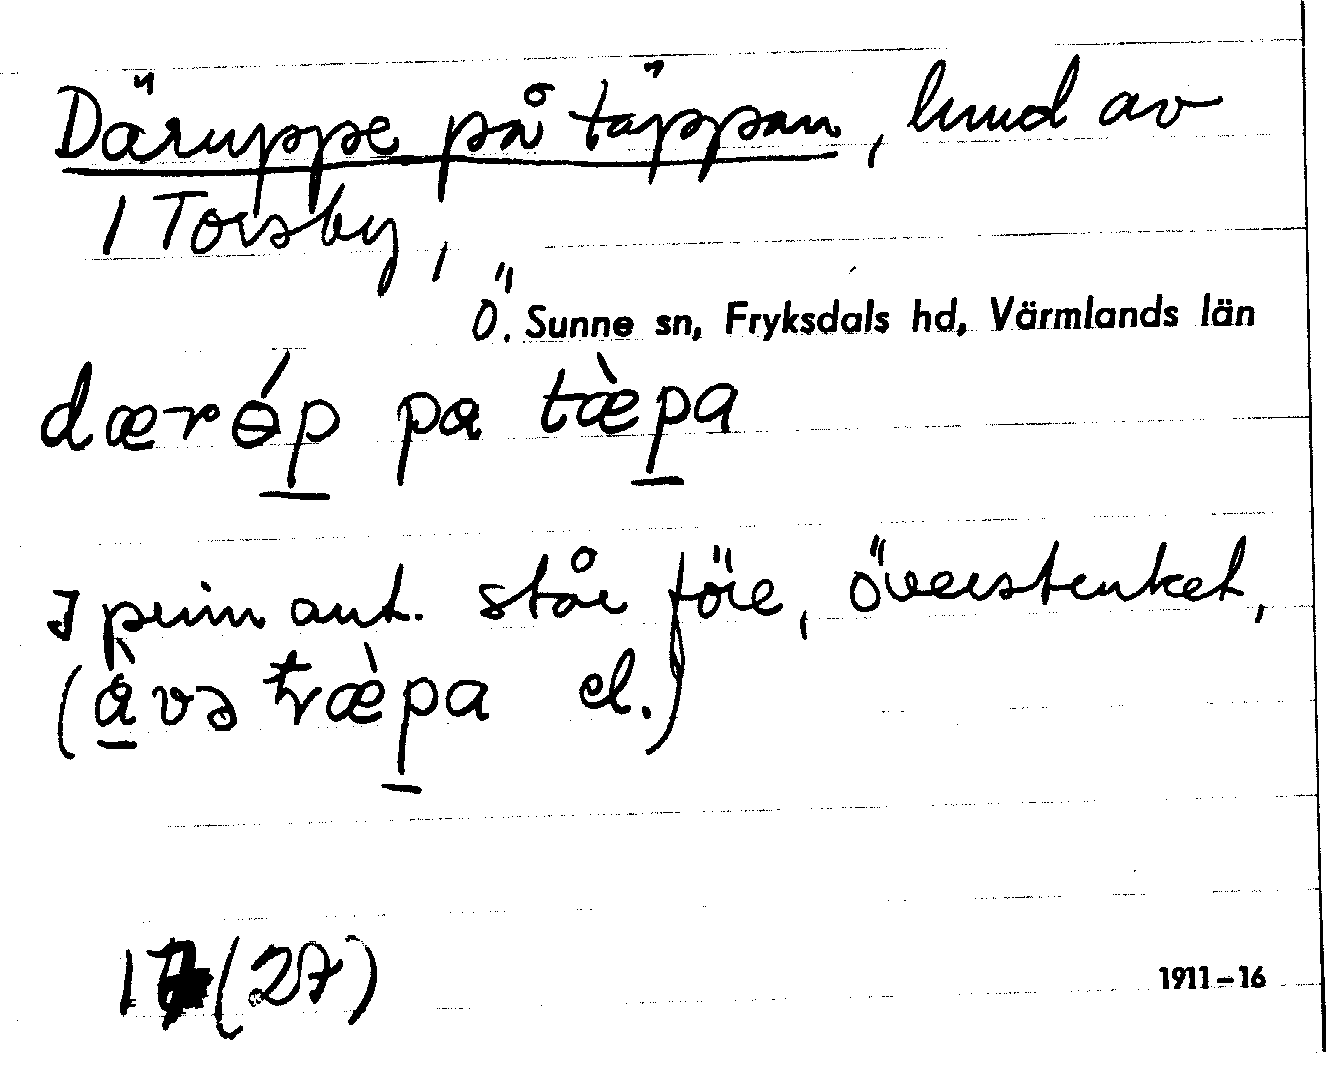 Däruppe på täppan, lund av
1 Torsby,
Ö. Sunne sn, Fryksdals hd, Värmlands län
dærɵ́p pa tæ̀pa
I prim ant. står före, överstruket,
(a̱və træ̀pa el.)
1 (27)
1911–16